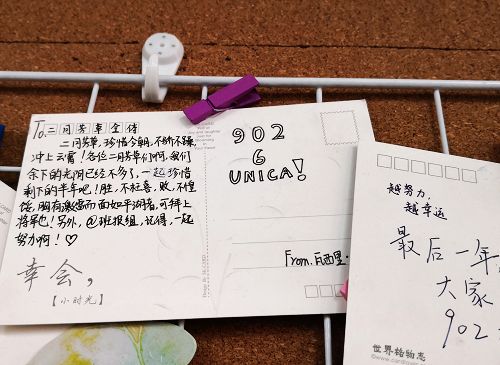 To. 二月芳草全体
二月芳草,珍惜今朝,不骄不躁,
冲上云霄!各位二月芳草们啊,我们
余下的光阴已经不多了,一起珍惜
剩下的半年吧!胜,不枉喜,败,不惶
馁,胸有激雷而面如平湖者,可拜上
将军也!另外,@班报组,记得,一起
努力啊!♡
幸会,
【小时光】
902
6
UNICA!
From.
越努力,
越幸运
最后一年,
大家
902
世界格物志